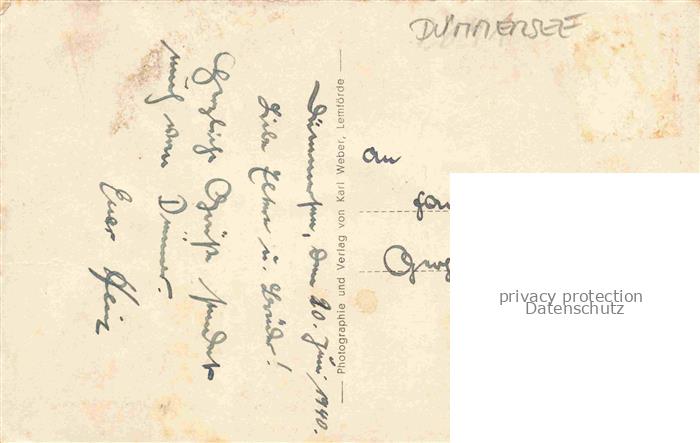 DÜMMERSEE
Dümmersee, den 20. Juni 1940.
Liebe Eltern u. Brüder!
Herzliche Grüße sendet
euch vom Dümmer.
Euer Heinz
Photographie und Verlag von Karl Weber, Lemförde
An
privacy protection
Datenschutz